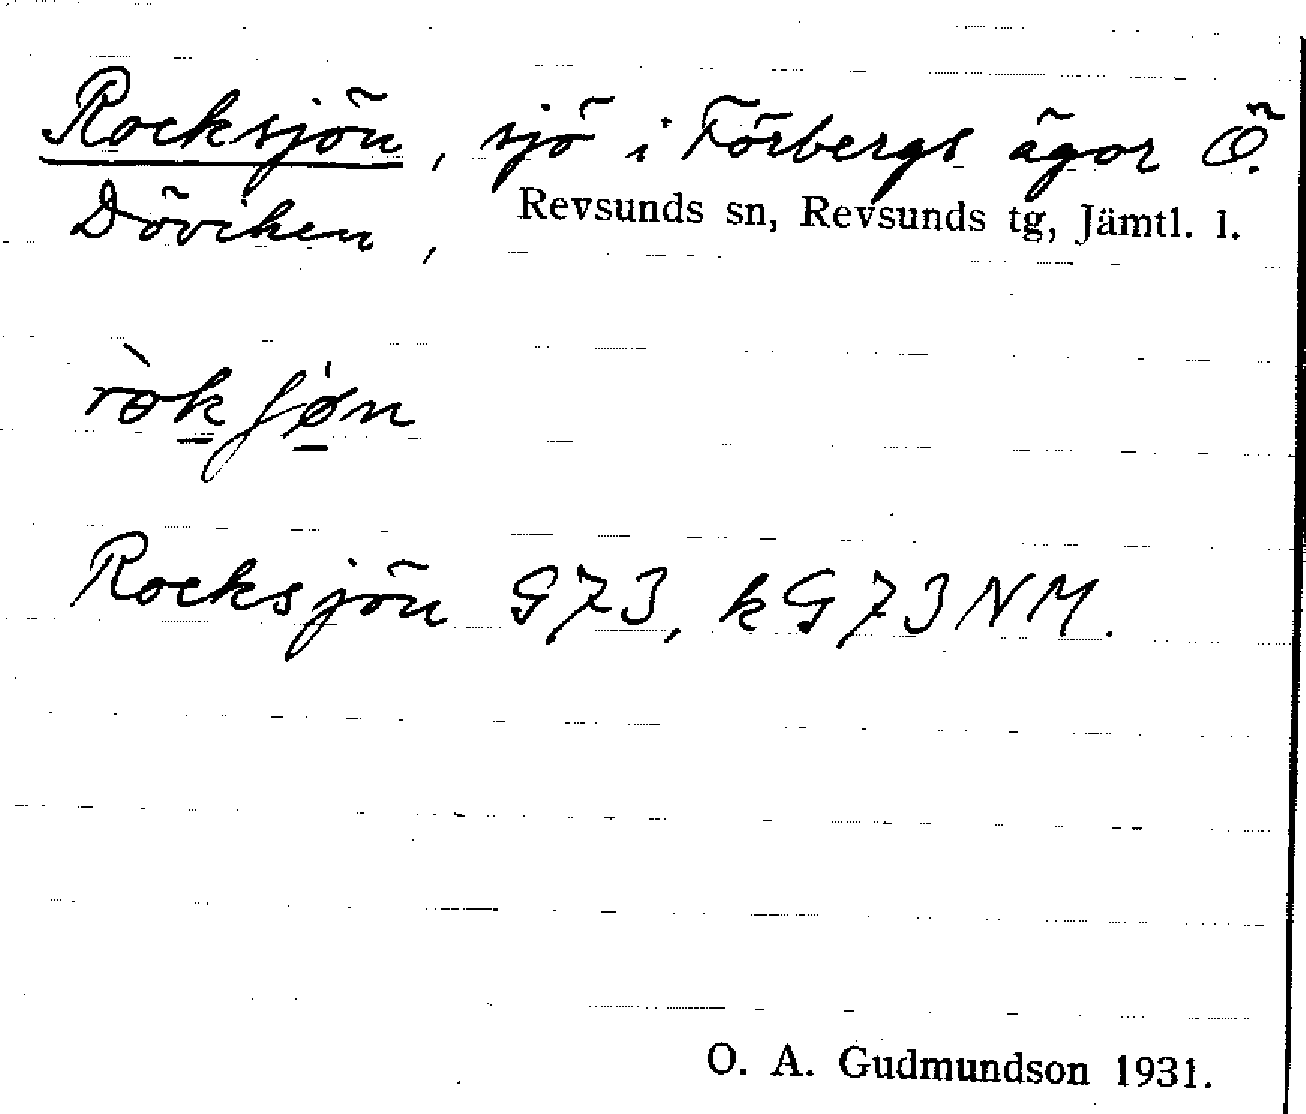 Rocksjön, sjö i Förbergs ägor Ö.
Döviken,
Revsunds sn, Revsunds tg, Jämtl. l.
ròkʃø̀n
Rocksjön G73, kG73NM.
O. A. Gudmundson 1931.